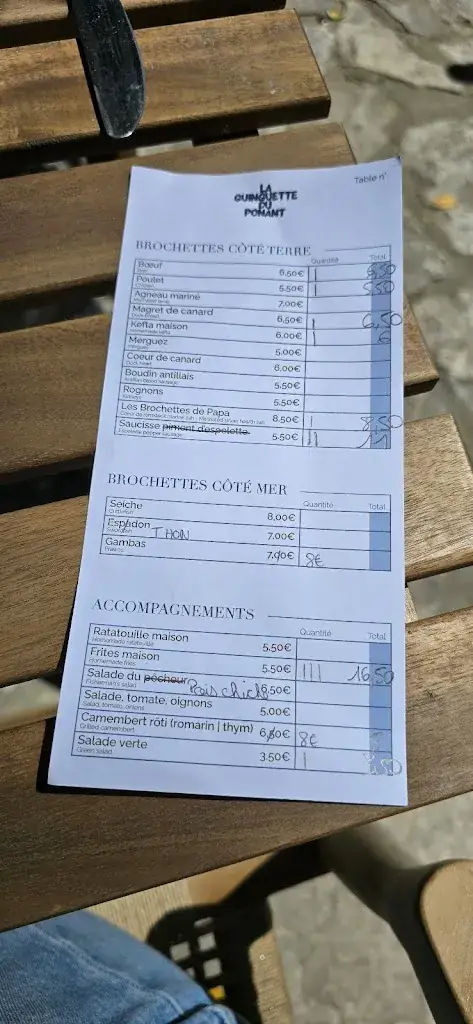 LA
GUINGUETTE
DU
PONANT
Table n°
BROCHETTES CÔTÉ TERRE
Quantité Total
Bœuf 6,50€ | 6,50
Beef
Poulet 5,50€ | 5,50
Chicken
Agneau mariné 7,00€
Marinated lamb
Magret de canard 6,50€ | 6,50
Duck breast
Kefta maison 6,00€ | 6
Homemade kefta
Merguez 5,00€
Merguez
Coeur de canard 6,00€
Duck heart
Boudin antillais 5,50€
Antillean blood sausage
Rognons 5,50€
Kidneys
Les Brochettes de Papa 8,50€ | 8,50
Saucisse piment d'espelette 5,50€ || 11
Espelette pepper sausage
BROCHETTES CÔTÉ MER
Quantité Total
Seiche 8,00€
Cuttlefish
Espadon THON 7,00€
Swordfish
Gambas 7,00€ 8€
Prawns
ACCOMPAGNEMENTS
Quantité Total
Ratatouille maison 5,50€
Homemade ratatouille
Frites maison 5,50€ ||| 16,50
Homemade fries
Salade du pêcheur Pois chich 6,50€
Fisherman's salad
Salade, tomate, oignons 5,00€
Salad, tomato, onions
Camembert rôti (romarin | thym) 6,50€ 8€
Grilled camembert
Salade verte 3,50€ | 3,50
Green salad